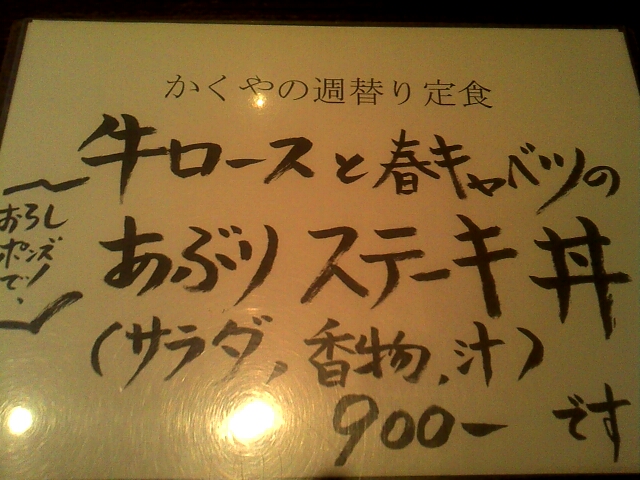 かくやの週替り定食
牛ロースと春キャベツの
あぶりステーキ丼
(サラダ,香物,汁)
900ー です
おろし
ポンズ
で!